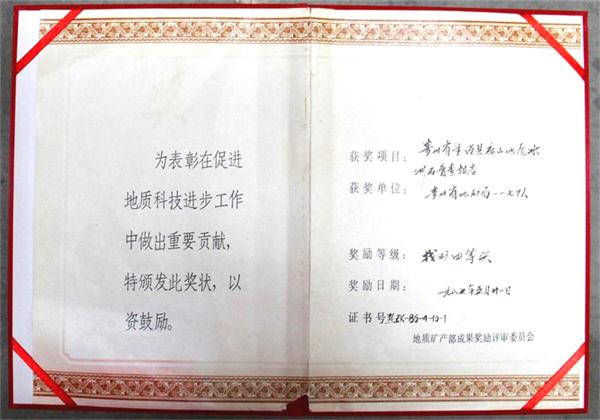 为表彰在促进
地质科技进步工作
中做出重要贡献，
特颁发此奖状，以
资鼓励。
获奖项目：贵州省
普查报告
获奖单位：贵州省地矿局一一七队
奖励等级：找矿四等奖
奖励日期：一九八 年五月廿一日
证书号
地质矿产部成果奖励评审委员会